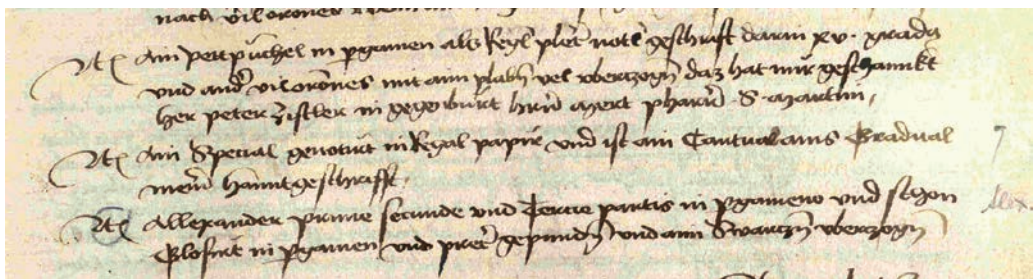 nach vil orones
Itm Ain pettpuchel in pgamen als Reyl plet notl geschrift darin xv · grad9
vnd and vil orones mit aim plabn vel vbertzogn daz hat mir geschannkt
her peter Zistler in gegenburt hrn mert pharr S. Martini,
Itm Ain Special genotirt in Regal papir vnd ist ain Cantual ains Gradual
mein hanntgeschrifft.
Itm Allexander prime secunde vnd Tercie partis in pgameno vnd schon
Glosirt in pgamen vnd pret gepundn vnd aim Swartzn vberzogn